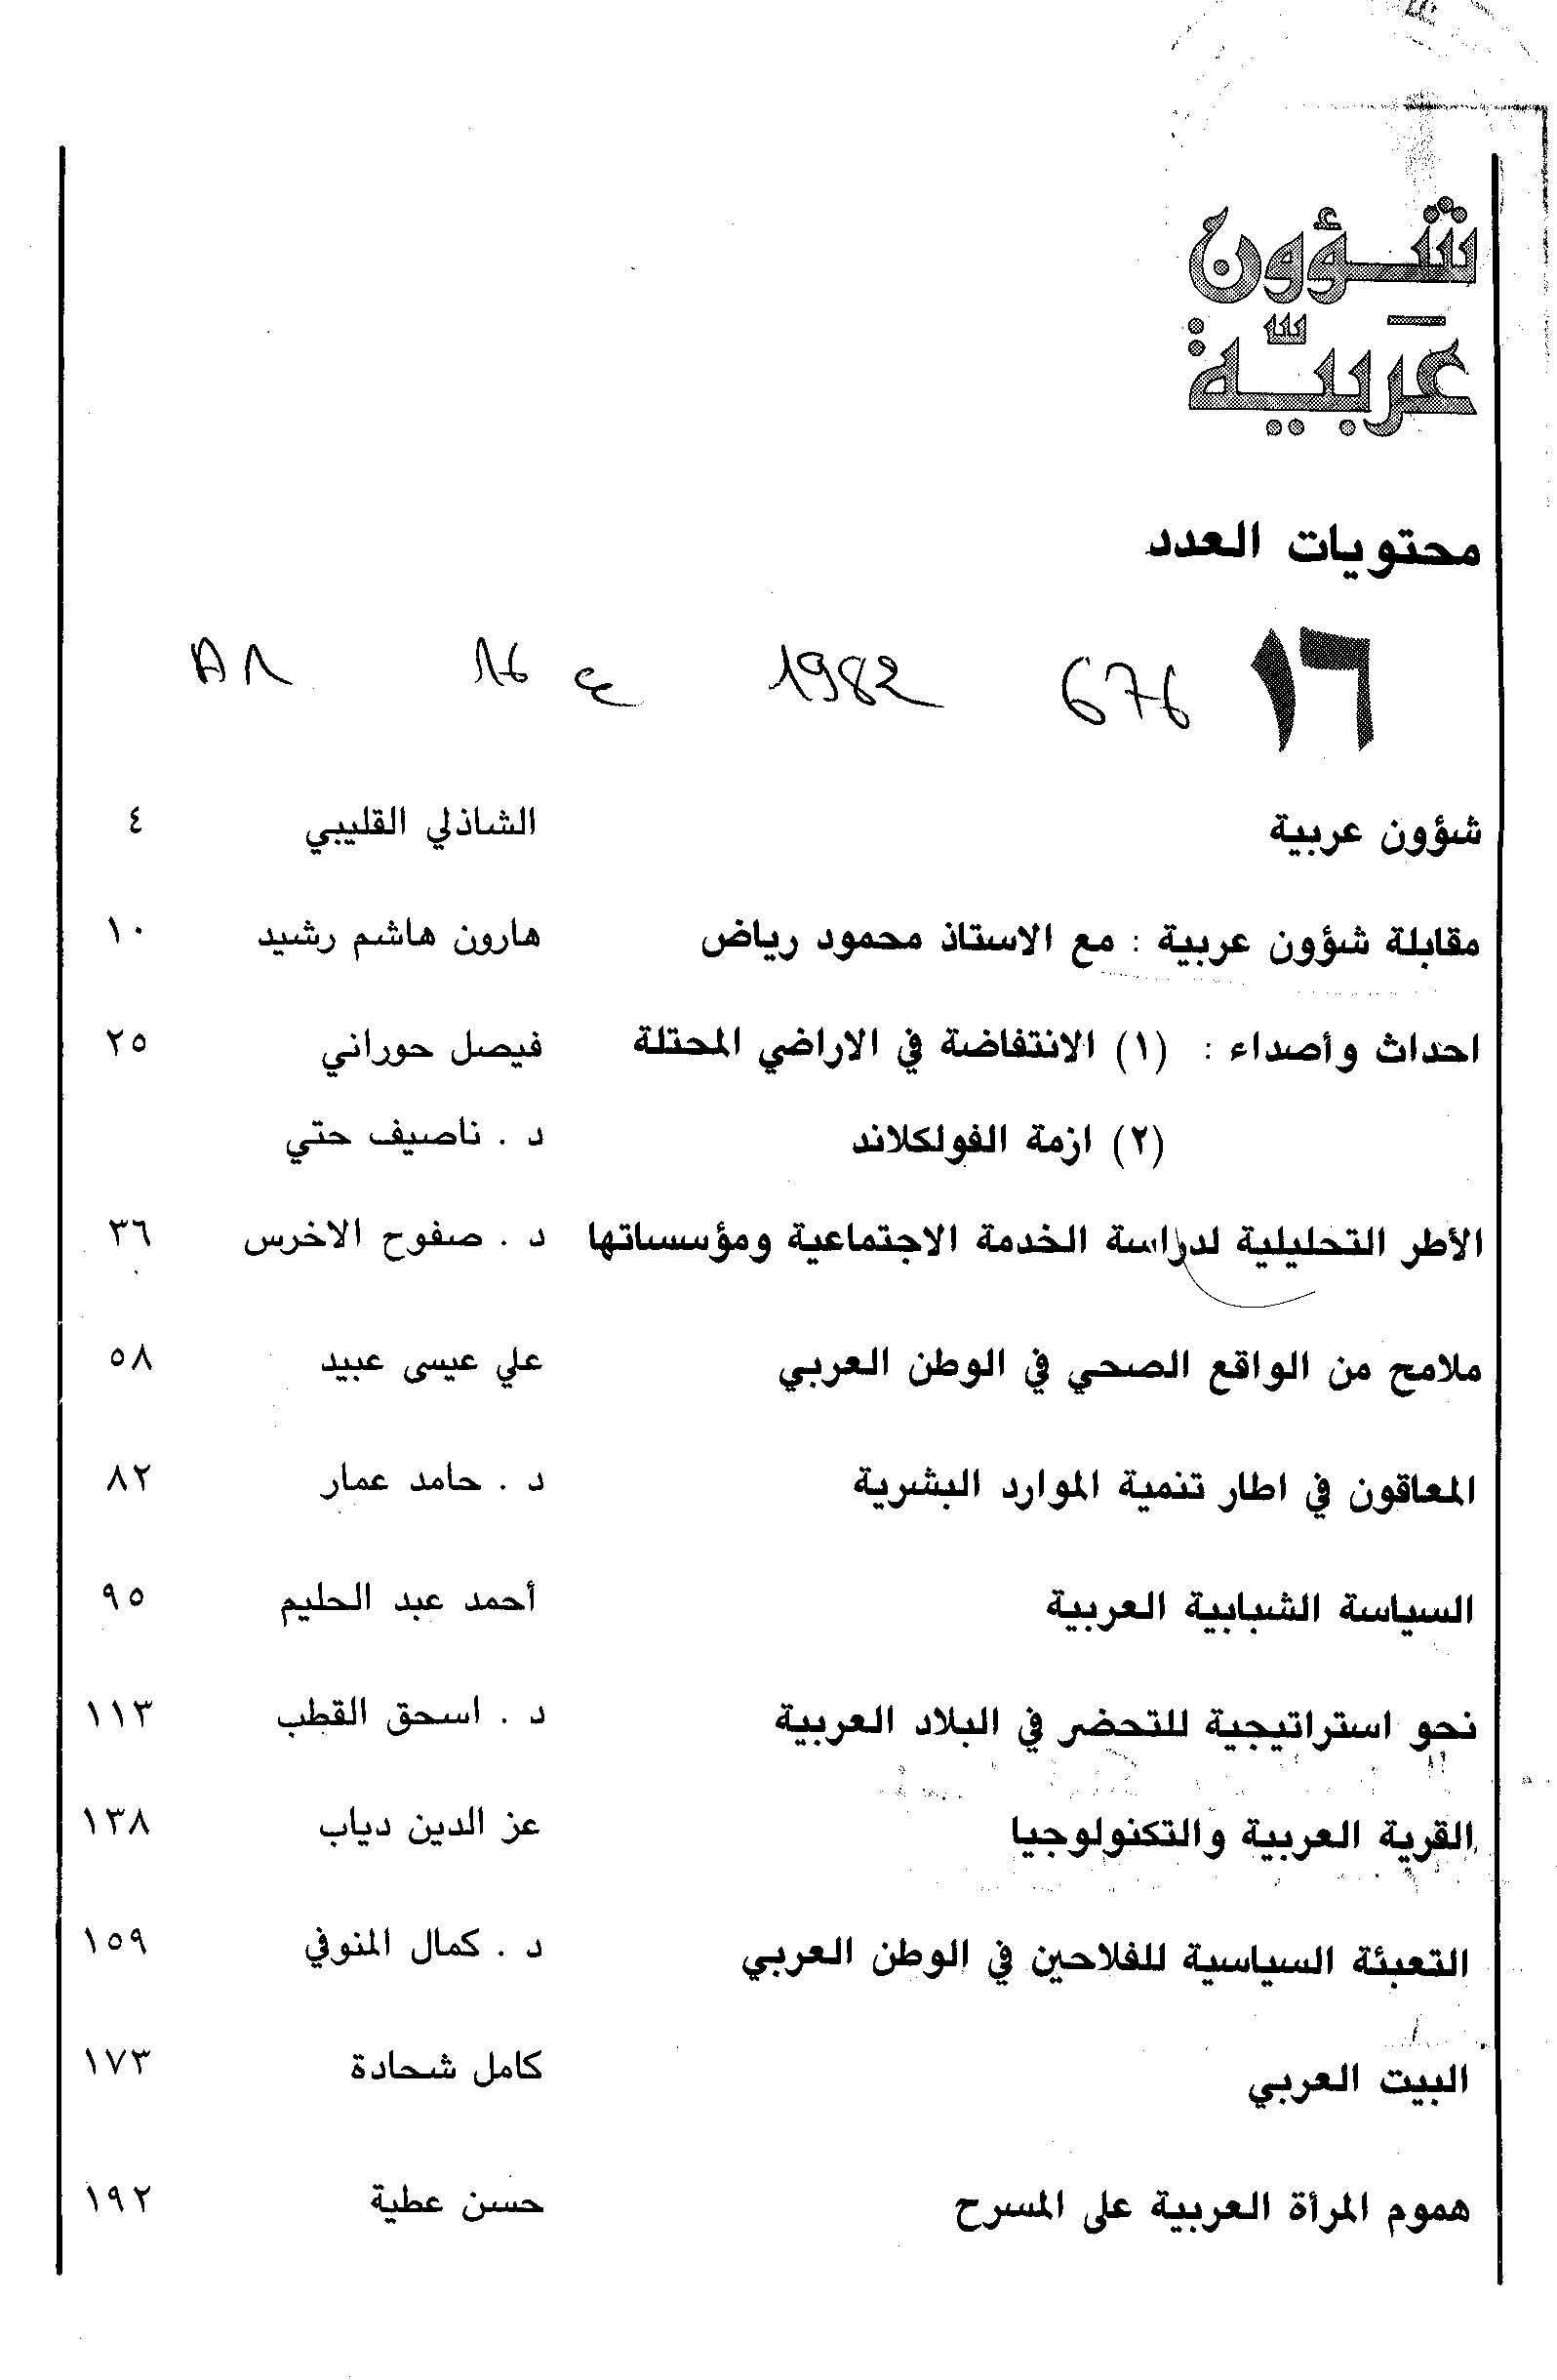 شؤون
عربية
محتويات العدد
١٦ 676 1982 ع 16
شؤون عربية الشاذلي القليبي ٤
مقابلة شؤون عربية : مع الاستاذ محمود رياض هارون هاشم رشيد ١٠
احداث وأصداء : (١) الانتفاضة في الاراضي المحتلة فيصل حوراني ٢٥
(٢) ازمة الفولكلاند د . ناصيف حتي
الأطر التحليلية لدراسة الخدمة الاجتماعية ومؤسساتها د . صفوح الاخرس ٣٦
ملامح من الواقع الصحي في الوطن العربي علي عيسى عبيد ٥٨
المعاقون في اطار تنمية الموارد البشرية د . حامد عمار ٨٢
السياسة الشبابية العربية أحمد عبد الحليم ٩٥
نحو استراتيجية للتحضر في البلاد العربية د . اسحق القطب ١١٣
القرية العربية والتكنولوجيا عز الدين دياب ١٣٨
التعبئة السياسية للفلاحين في الوطن العربي د . كمال المنوفي ١٥٩
البيت العربي كامل شحادة ١٧٣
هموم المرأة العربية على المسرح حسن عطية ١٩٢